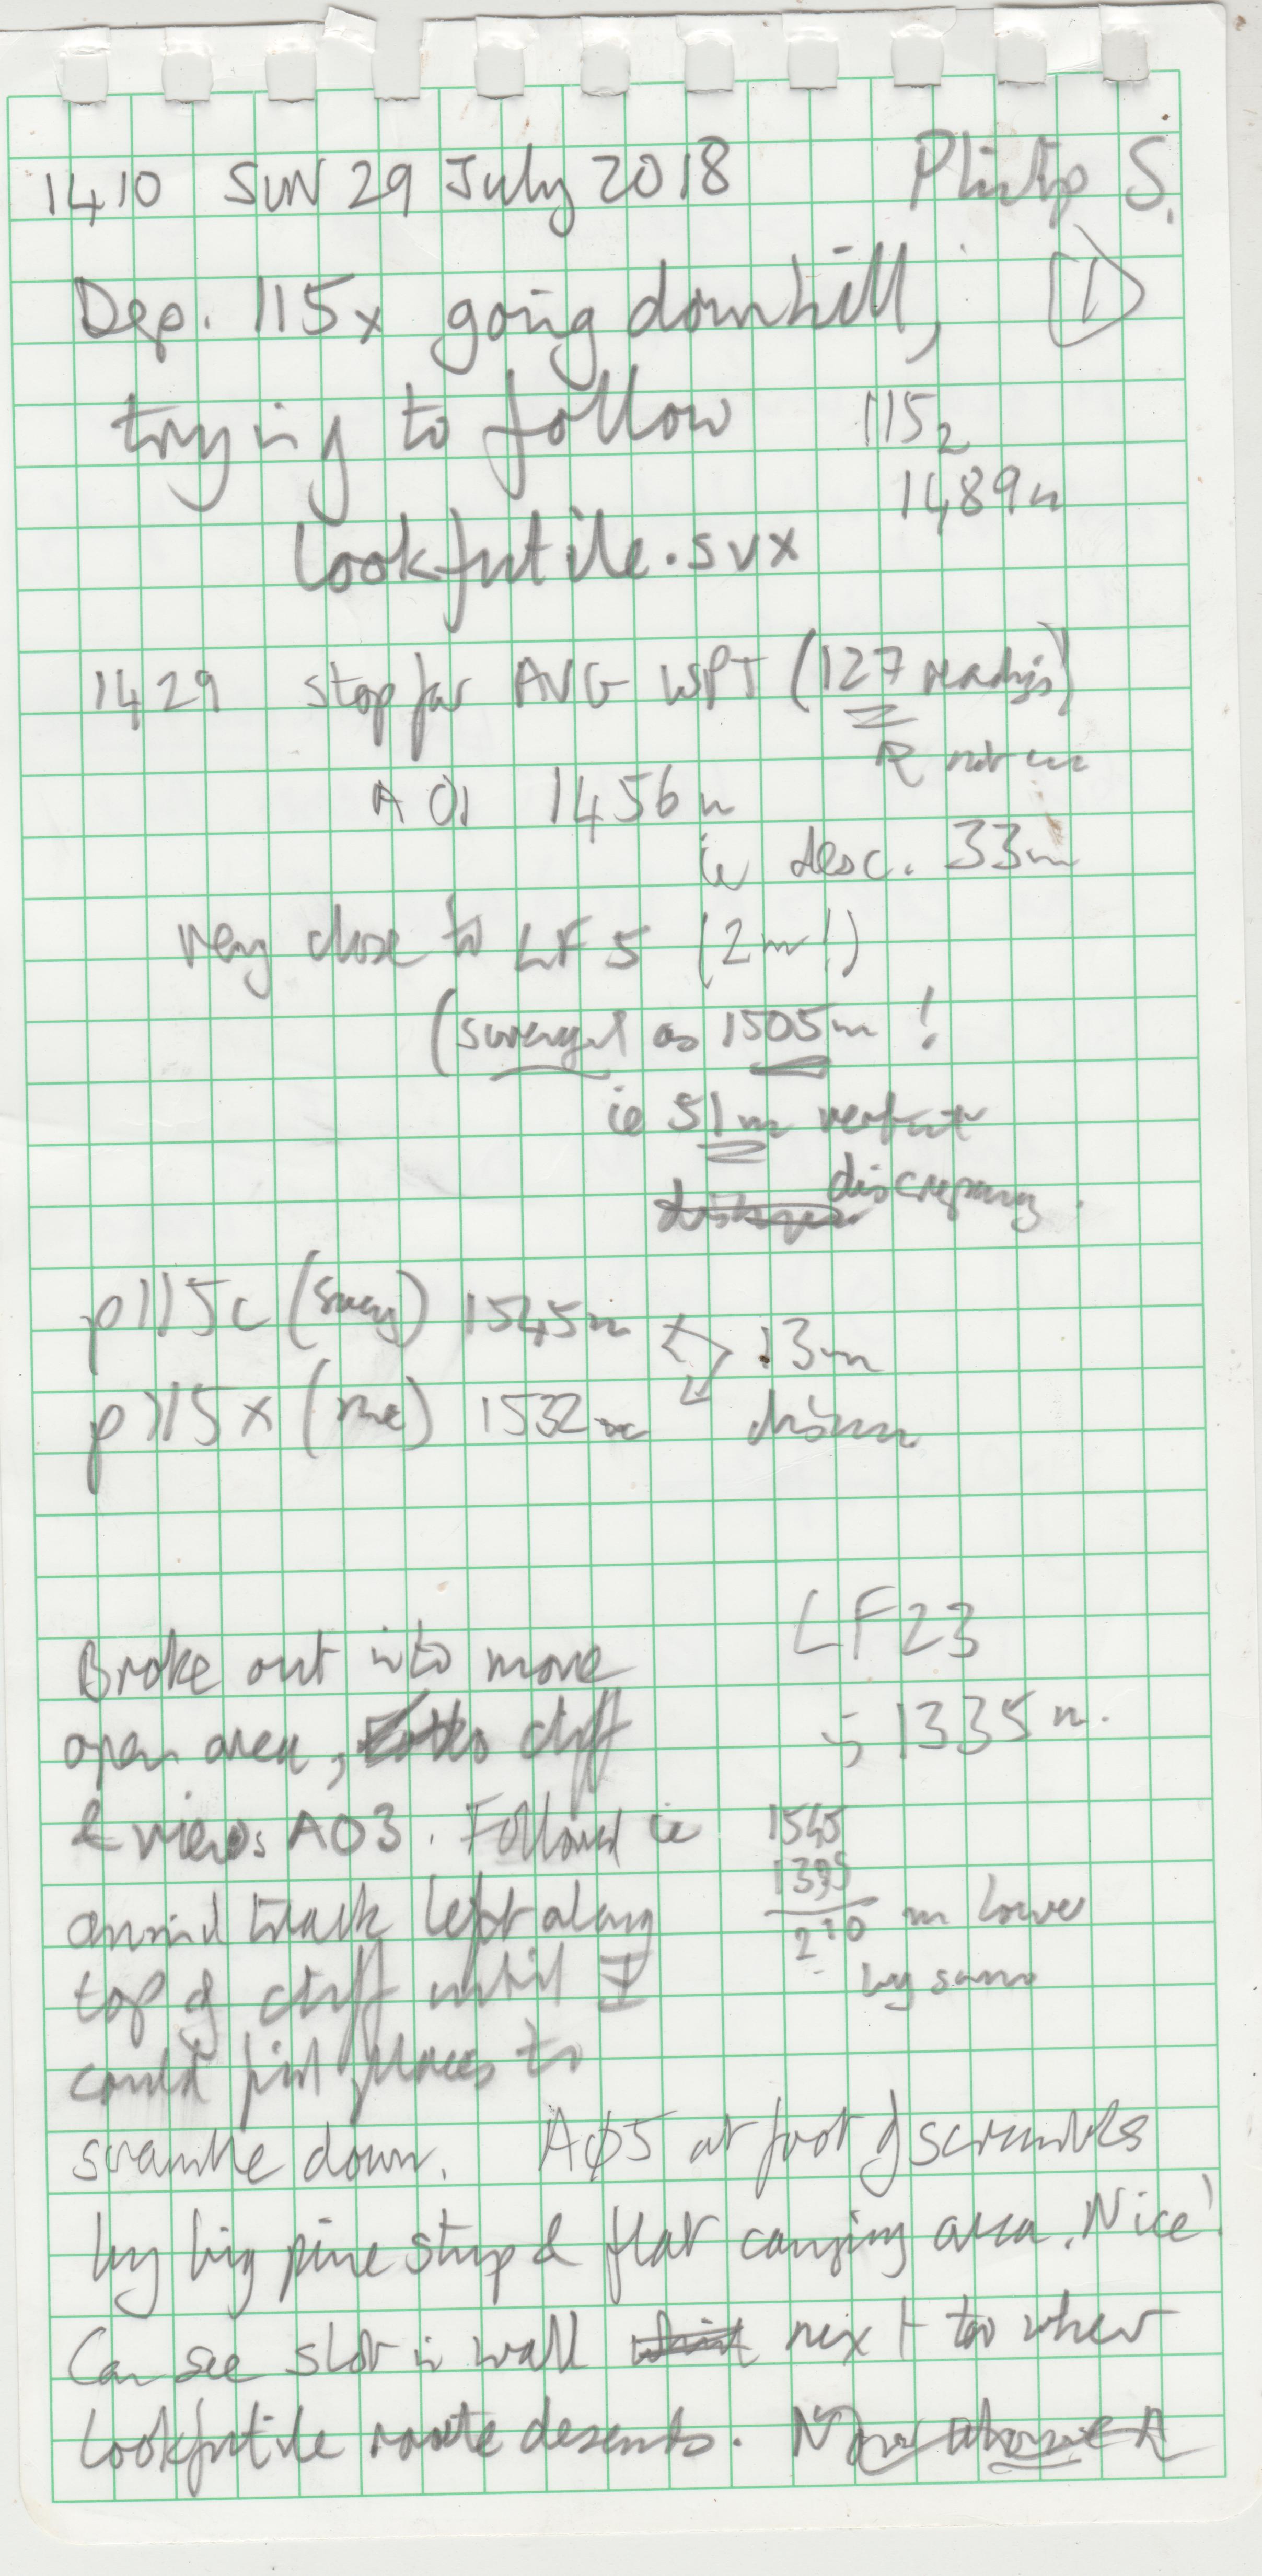 1410 SUN 29 July 2018 Philip S.
Dep. 115x going downhill, 1
trying to follow 115₂
1489m
lookfutile.svx
1429 stop for AVG WPT (127 readings)
A01 1456m
ie desc. 33m
very close to LF5 (2m!)
(surveyed as 1505m!
ie 51m vertical
discrepancy.
p115c (survey) 1545m 13m
p115x (me) 1532m down
LF23
Broke out into more
is 1335m.
open area, cliff
& views A03. Followed ie 1545
1335
animal track left along 210 m lower
top of cliff until I by survey
could find places to
scramble down. Aø5 at foot of scrambles
by big pine stump & flat camping area. Nice!
Can see slot in wall next to where
lookfutile route descends.